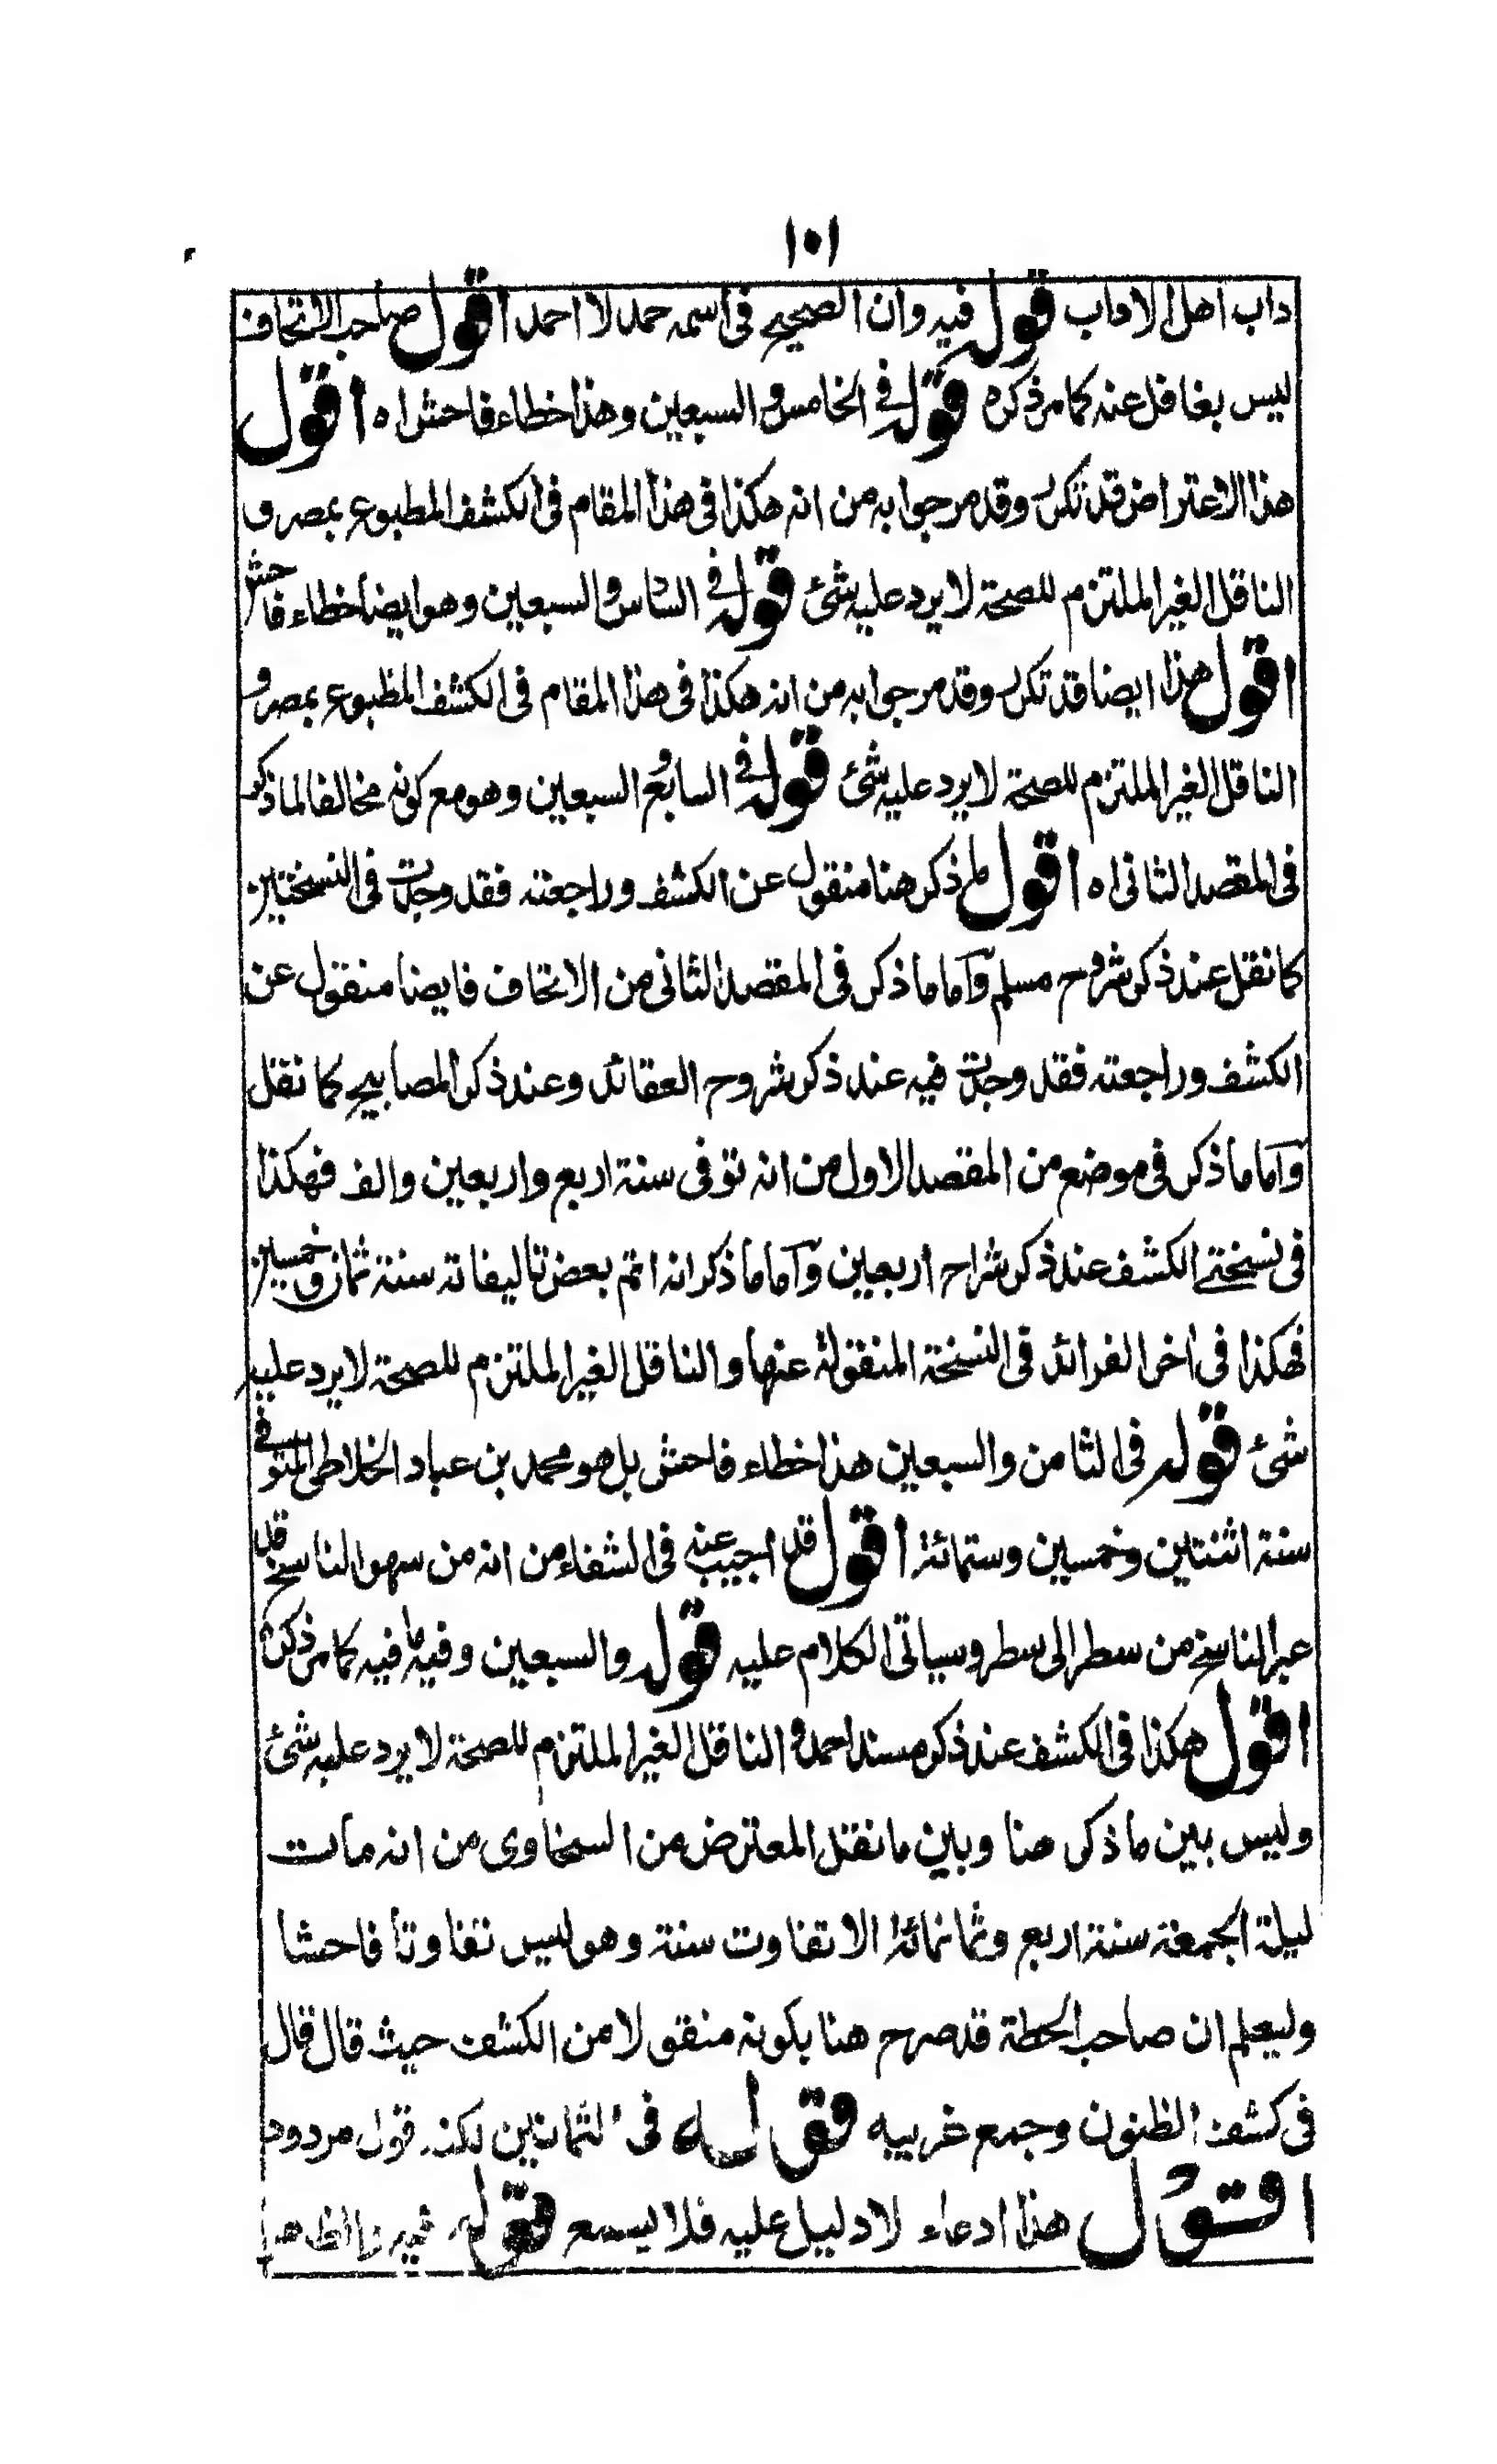 ١٠١
داب اهل الاداب قوله فيه وان الصحيح فى اسمه حمد لا احمد اقول صاحب الاتحاف
ليس بغافل عنه كما مر ذكره قوله فى الخامس والسبعين وهذا خطاء فاحش اه اقول
هذا الاعتراض قد تكرر وقد مر جوابه من انه هكذا فى هذا المقام فى الكشف المطبوع بمصر و
الناقل الغير الملتزم للصحة لا يرد عليه شئ قوله فى السادس والسبعين وهو ايضا خطاء فاحش
اقول هذا ايضا قد تكرر وقد مر جوابه من انه هكذا فى هذا المقام فى الكشف المطبوع بمصر و
الناقل الغير الملتزم للصحة لا يرد عليه شئ قوله فى السابع والسبعين وهو مع كونه مخالفا لما ذكر
فى المقصد الثانى اه اقول ما ذكر هنا منقول عن الكشف وراجعته فقد وجدت فى النسختين
كما نقل عند ذكر شروح مسلم وآما ما ذكر فى المقصد الثانى من الاتحاف فايضا منقول عن
الكشف وراجعته فقد وجدت فيه عند ذكر شروح العقائد وعند ذكر المصابيح كما نقل
وآما ما ذكر فى موضع من المقصد الاول من انه توفى سنة اربع واربعين والف فهكذا
فى نسختى الكشف عند ذكر شراح اربعين وآما ما ذكر انه اتم بعض تاليفاته سنة ثمان وخمسين
فهكذا فى اخر الفرائد فى النسخة المنقولة عنها والناقل الغير الملتزم للصحة لا يرد عليه
شئ قوله فى الثامن والسبعين هذا خطاء فاحش بل هو محمد بن عباد الخلاطى المتوفى
سنة اثنتين وخمسين وستمائة اقول قد اجيب عنه فى الشفاء من انه من سهو الناسخ قد
عبر الناسخ من سطر الى سطر وسياتى الكلام عليه قوله والسبعين وفيه ما فيه كما مر ذكره
اقول هكذا فى الكشف عند ذكر مسند احمد والناقل الغير الملتزم للصحة لا يرد عليه شئ
وليس بين ما ذكر هنا وبين ما نقل المعترض من السخاوى من انه مات
ليلة الجمعة سنة اربع وثمانمائة الا تفاوت سنة وهو ليس تفاوتا فاحشا
وليعلم ان صاحب الحطة قد صرح هنا بكونه منقولا من الكشف حيث قال قال
فى كشف الظنون وجمع غريبه قوله فى الثمانين لكنه قول مردود
اقول هذا ادعاء لا دليل عليه فلا يسمع قوله